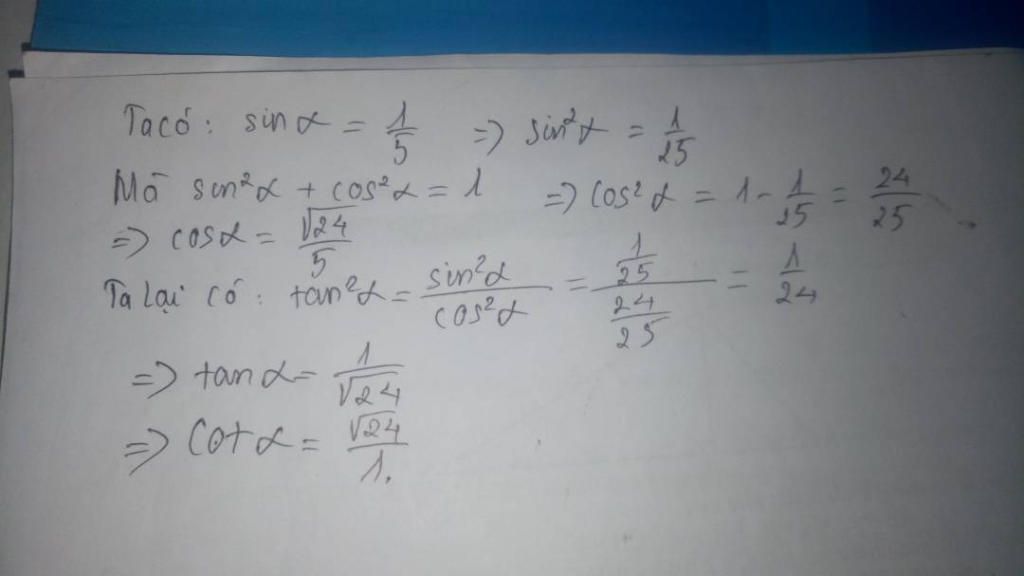 Ta có: sin α = 1/5 => sin²α = 1/25
Mà sin²α + cos²α = 1 => cos²α = 1 - 1/25 = 24/25
=> cosα = √24/5
Ta lại có: tan²α = sin²α/cos²α = (1/25)/(24/25) = 1/24
=> tan α = 1/√24
=> cot α = √24/1.